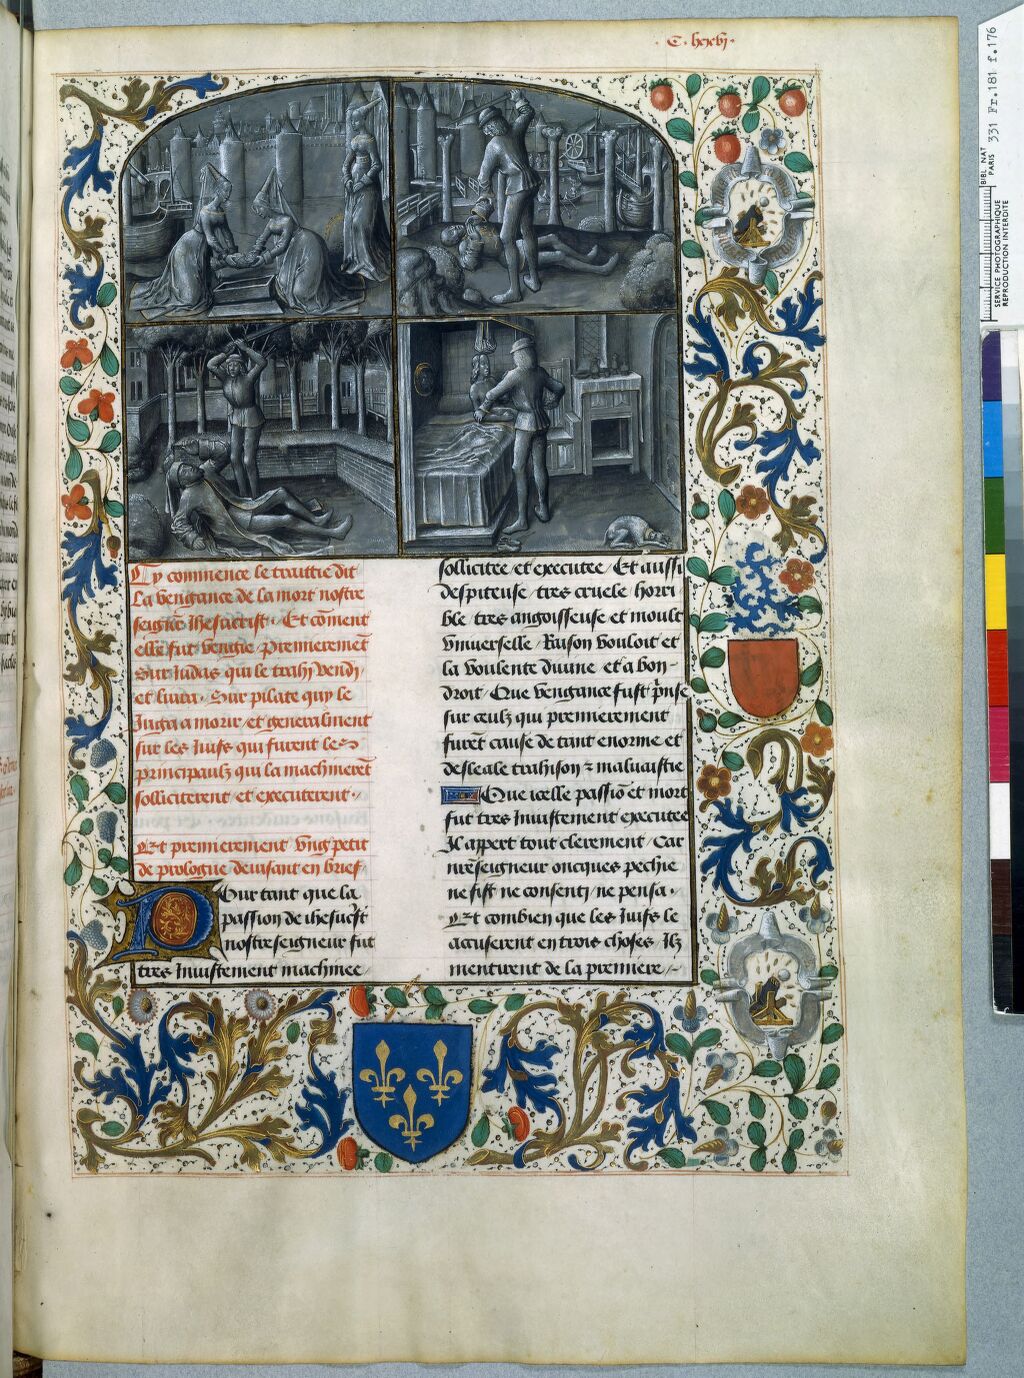 Cy commence le traittie dit
La vengance de la mort nostre
seigne᷑ Ihesucrist · Et cōment
elle fut vengie · Premieremēt
Sur Iudas qui le trahy vendi
et liura · Sur pilate quy le
Iuga a morir et generalment
sur les Iuifs qui furent les
principaulz qui la machinerēt
solliciterent et executerent ·
Et premierement vng petit
de prologue deuisant en brief
Pour tant que la
passion de ihesucrist
nostre seigneur fut
tres Iniustement machinee /
sollicitee / et executee / Et aussi
despiteuse / tres cruele horri
ble tres angoisseuse et moult
vniuerselle / Raison vouloit et
la voulente diuine et a bon
droit / Que vengance fust p̄nse
sur ceulz qui premierement
furēt cause de tant enorme et
desleale trahison ⁊ maluaistie
Que icelle passiō et mort
fut tres Iniustement executee
Il appert tout clerement / Car
nr̄e seigneur oncques pechie
ne fist ne consenti / ne pensa ·
Et combien que les Iuifs le
accuserent en trois choses / Ilz
mentirent de la premiere /
BIBL. NAT
PARIS
331 Fr.181 f.176
SERVICE PHOTOGRAPHIQUE
REPRODUCTION INTERDITE